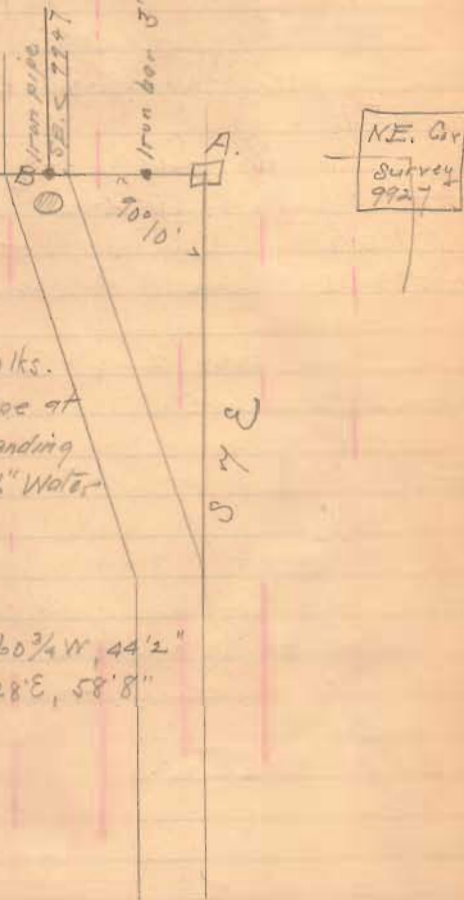 Iron pipe
S.E. S 9947
Iron bar 3'
A.
B
90° 10'
N.E. Cor
Survey
9927
lks.
at
anding
" Water
S 7 E
60 3/4 W, 44'2"
28'E, 58'8"